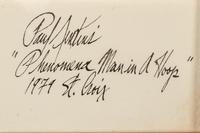 Paul
"Phenomena Man in A Hoop"
1979 St. Croix